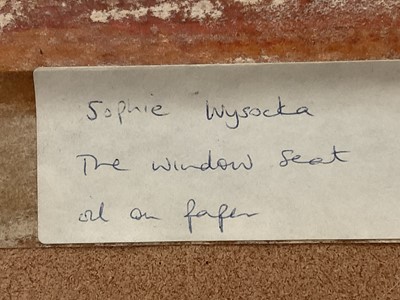 Sophie Wysocka
The window seat
oil on paper